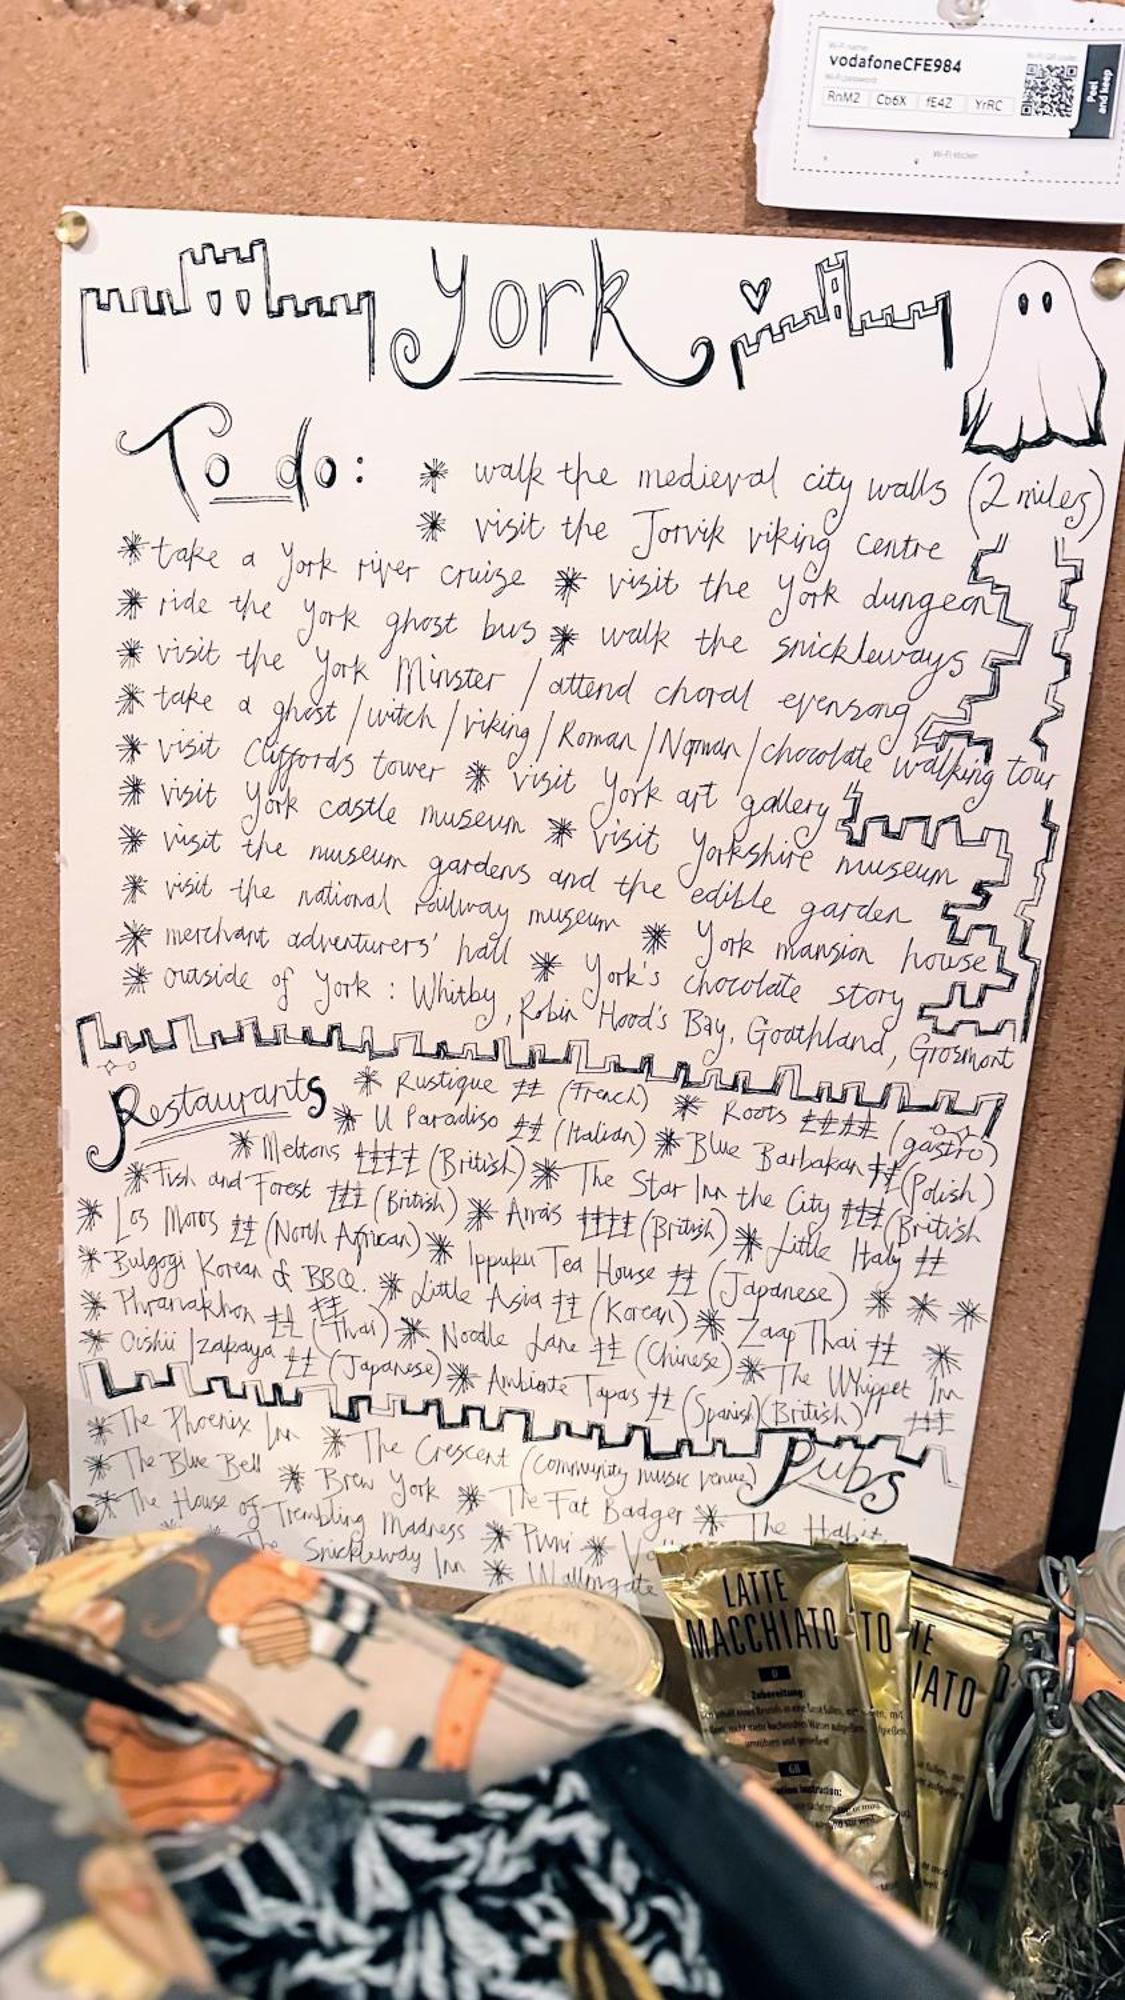 Wi-Fi name:
Wi-Fi QR code:
vodafoneCFE984
Wi-Fi password:
RnM2 Cb6X fE4Z YrRC
Peel and keep
Wi-Fi sticker
York
To do:
* walk the medieval city walls (2 miles)
* visit the Jorvik viking centre
* take a York river cruise * visit the York dungeon
* ride the York ghost bus * walk the snickleways
* visit the York Minster / attend choral evensong
* take a ghost / witch / viking / Roman / Norman / chocolate walking tour
* visit Cliffords tower * visit York art gallery
* visit York castle museum * visit Yorkshire museum
* visit the museum gardens and the edible garden
* visit the national railway museum * York mansion house
* merchant adventurers' hall * York's chocolate story
* outside of York : Whitby, Robin Hood's Bay, Goathland, Grosmont
Restaurants * Rustique ££ (French) * Roots ££££ (gastro)
* Il Paradiso ££ (Italian) * Blue Barbakan ££ (Polish)
* Meltons ££££ (British) * The Star Inn the City £££ (British
* Fish and Forest £££ (British) * Arras ££££ (British) * Little Italy ££
* Los Moros ££ (North African) * Ippuku Tea House ££ (Japanese) * * *
* Bulgogi Korean & BBQ. ££ * Little Asia ££ (Korean) * Zaap Thai ££
* Phranakhon ££ (Thai) * Noodle Lane ££ (Chinese) * The Whippet Inn £££ (British)
* Oishii Izakaya ££ (Japanese) * Ambiente Tapas ££ (Spanish)
Pubs
* The Phoenix Inn * The Crescent (community music venue)
* The Blue Bell * Brew York * The Fat Badger * The Habit
* The House of Trembling Madness * Pivni *
The Snickleway Inn * Walmgate
LATTE
MACCHIATO
D
Zubereitung:
GB
TO
TE
IATO